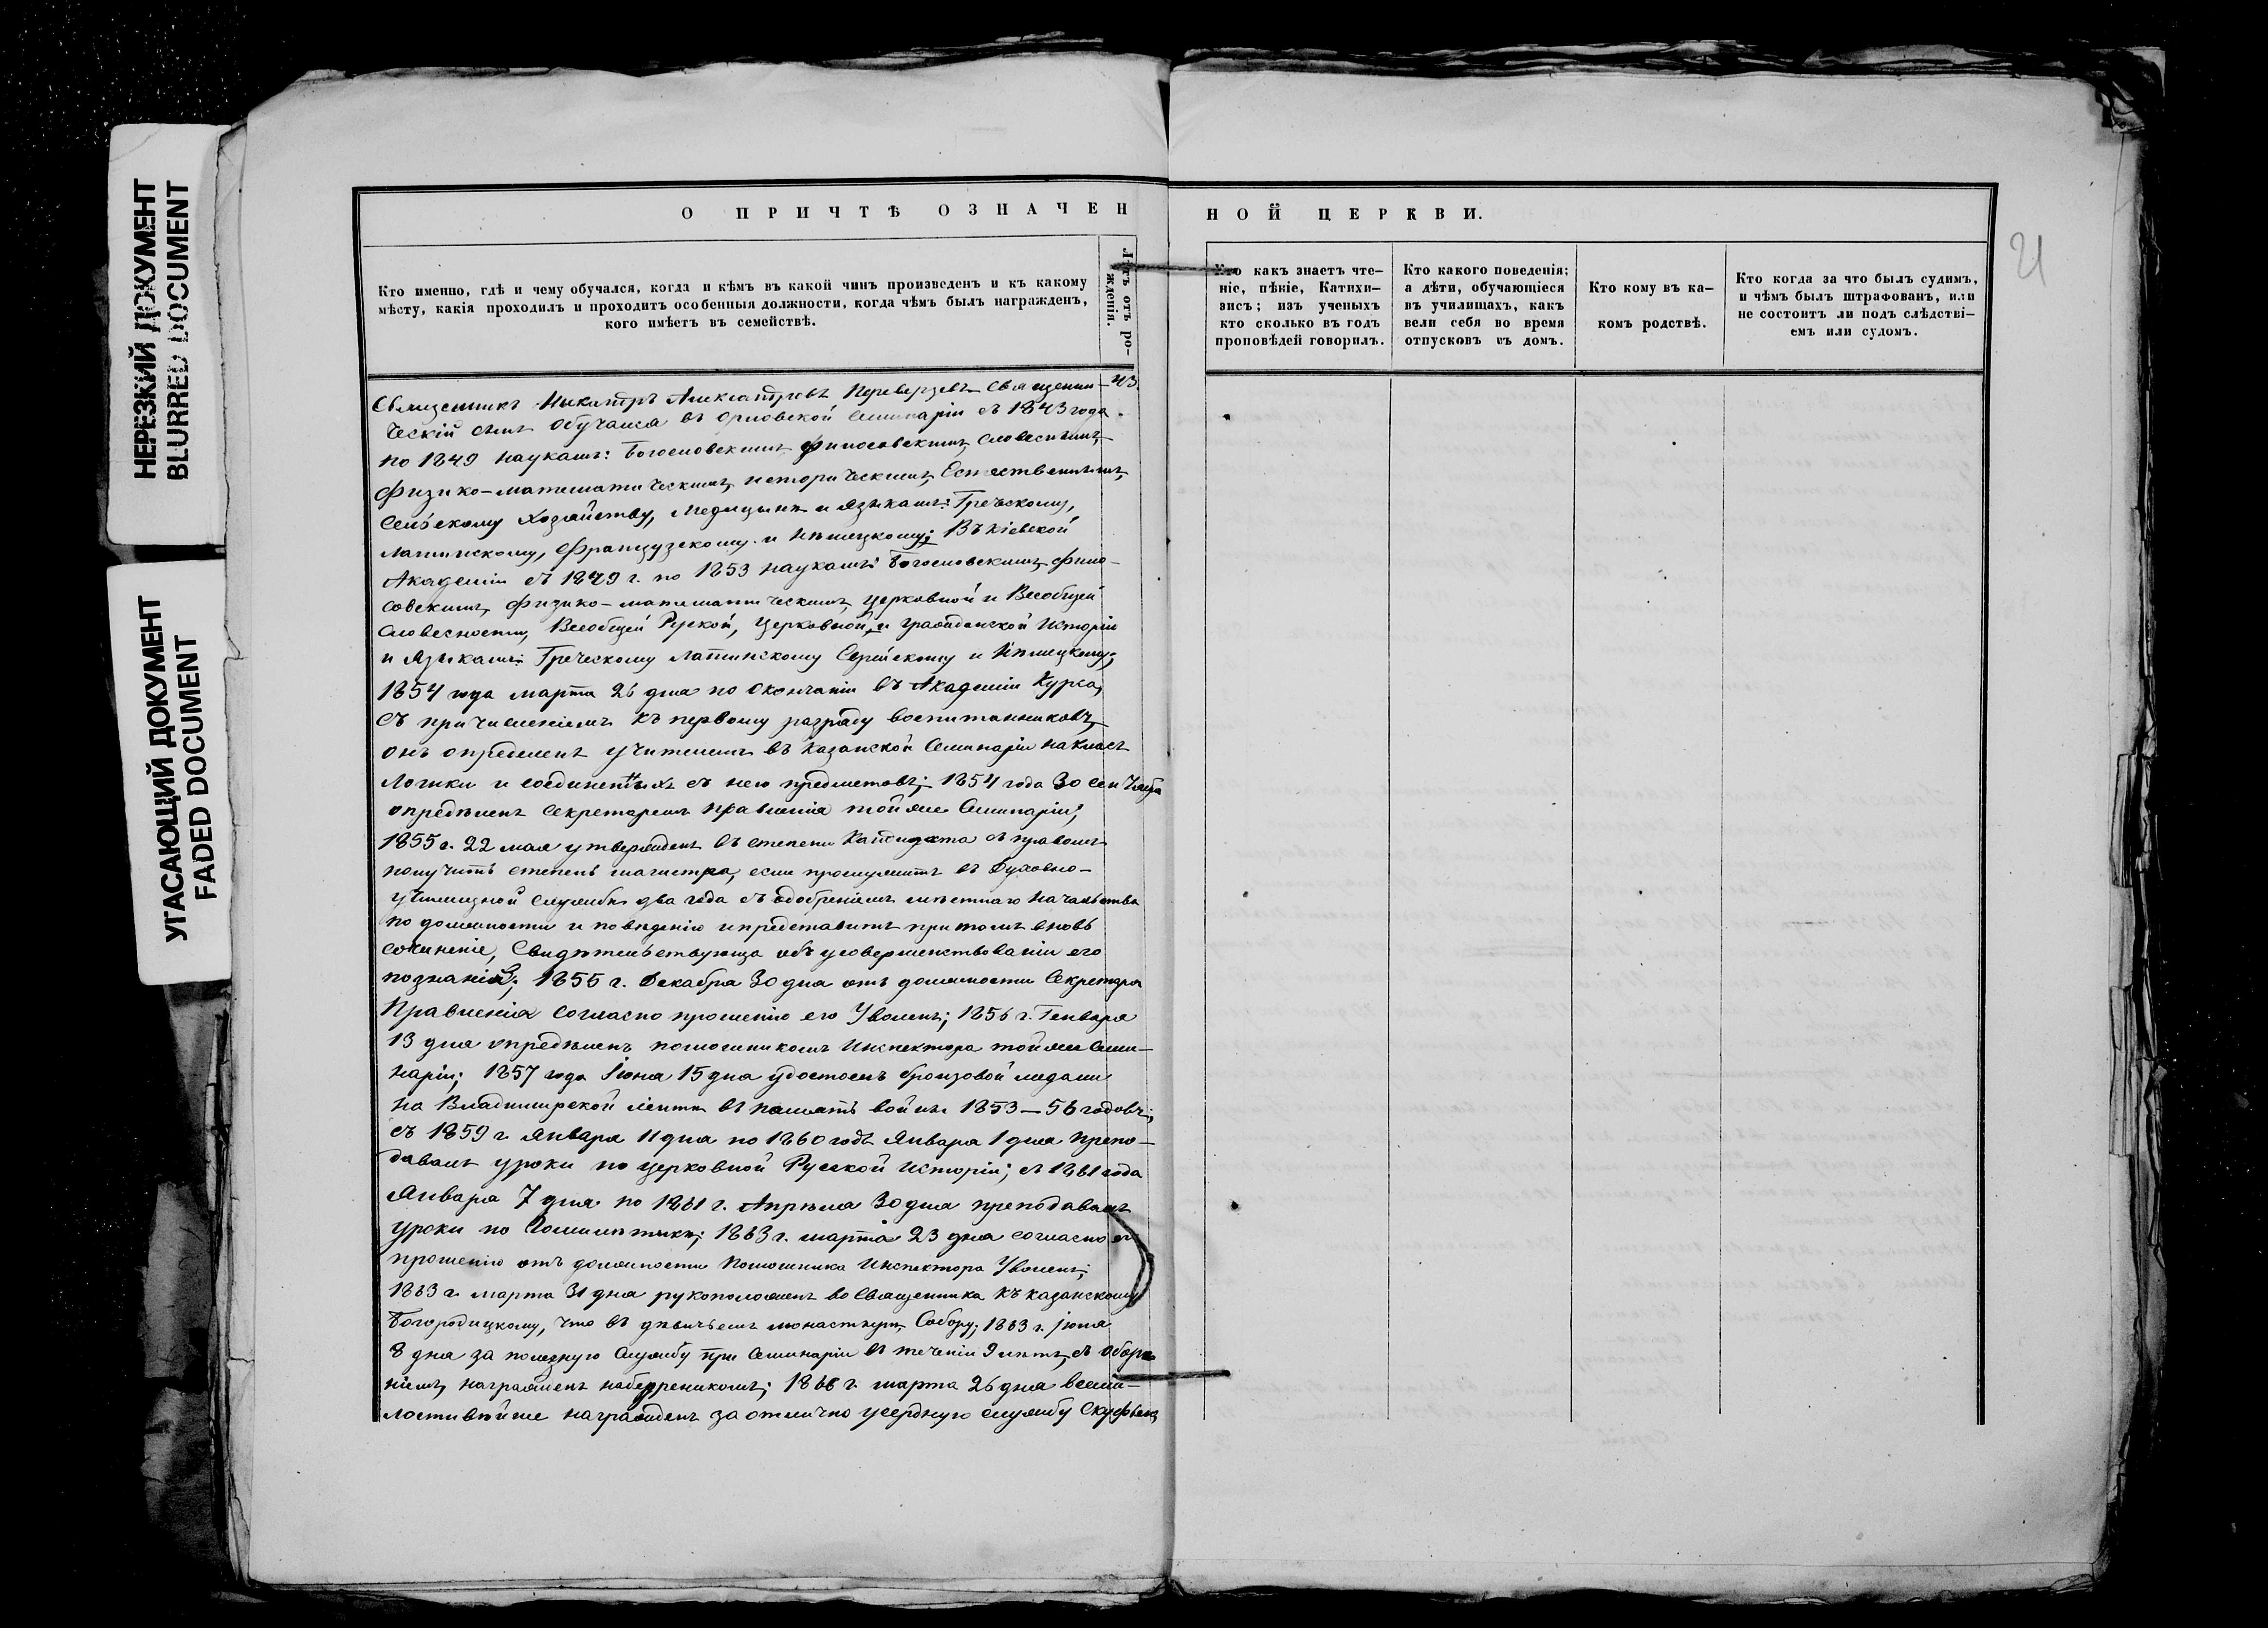 НЕРЕЗКИЙ ДОКУМЕНТ
BLURRED DOCUMENT
УГАСАЮЩИЙ ДОКУМЕНТ
FADED DOCUMENT
О ПРИЧТѢ ОЗНАЧЕННОЙ ЦЕРКВИ.
21
Кто именно, гдѣ и чему обучался, когда и кѣмъ въ какой чинъ произведенъ и къ какому
мѣсту, какія проходилъ и проходитъ особенныя должности, когда чѣмъ былъ награжденъ,
кого имѣетъ въ семействѣ.
Лѣтъ отъ ро-
жденія.
Кто какъ знаетъ чте-
ніе, пѣніе, Катихи-
зисъ; изъ ученыхъ
кто сколько въ годъ
проповѣдей говорилъ.
Кто какого поведенія;
а дѣти, обучающіеся
въ училищахъ, какъ
вели себя во время
отпусковъ въ домъ.
Кто кому въ ка-
комъ родствѣ.
Кто когда за что былъ судимъ,
и чѣмъ былъ штрафованъ, или
не состоитъ ли подъ слѣдстві-
емъ или судомъ.
Священникъ Никандръ Александровъ Переверзевъ Священни- 43.
ческій сынъ обучался въ Орловской Семинаріи съ 1843 года
по 1849 наукамъ: Богословскимъ, философскимъ, словеснымъ,
физико-математическимъ, историческимъ, Естественнымъ,
Сельскому хозяйству, Медицинѣ и языкамъ: Греческому,
Латинскому, Французскому и Нѣмецкому; Въ Кіевской
Академіи съ 1849 г. по 1853 наукамъ: Богословскимъ, фило-
софскимъ, физико-математическимъ, церковной и Всеобщей
Словесности, Всеобщей Руской, Церковной, и гражданской Исторіи
и Языкамъ: Греческому Латинскому Еврейскому и Нѣмецкому;
1854 года марта 26 дня по окончаніи въ Академіи Курса,
съ причисленіемъ къ первому разряду воспитанниковъ,
онъ опредѣленъ учителемъ въ Казанской Семинаріи на класъ
Логики и соединенныхъ съ нею предметовъ; 1854 года 30 сентября
опредѣленъ Секретаремъ Правленія той же Семинаріи;
1855 г. 22 мая утвержденъ въ степени Кандидата съ правомъ
получить степень магистра, если прослужитъ въ Духовно-
училищной службѣ два года съ одобреніемъ мѣстнаго начальства
по должности и поведенію и представитъ притомъ вновь
сочиненіе, свидѣтельствующа объ усовершенствованіи его
познаній; 1855 г. Декабря 30 дня отъ должности Секретаря
Правленія согласно прошенію его Уволенъ; 1856 г. Генваря
13 дня опредѣленъ помощникомъ Инспектора той же Семи-
наріи; 1857 года Іюня 15 дня удостоенъ бронзовой медали
на Владимирской лентѣ въ память войны 1853—56 годовъ;
съ 1859 г. Января 11 дня по 1860 годъ Января 1 дня препо-
давалъ уроки по церковной Русской Исторіи; съ 1861 года
Января 7 дня по 1861 г. Апрѣля 30 дня преподавалъ
уроки по Гомилетикѣ; 1863 г. марта 23 дня согласно его
прошенію отъ должности Помощника Инспектора Уволенъ;
1863 г. марта 31 дня рукоположенъ во Священника къ Казанскому
Богородицкому, что въ дѣвичьемъ монастырѣ, Собору; 1863 г. Іюня
8 дня за полезную службу при Семинаріи въ теченіи 9 лѣтъ, съ одобре-
ніемъ, награжденъ набедренникомъ; 1868 г. марта 26 дня всеми-
лостивѣйше награжденъ за отлично усердную службу Скуфьею,